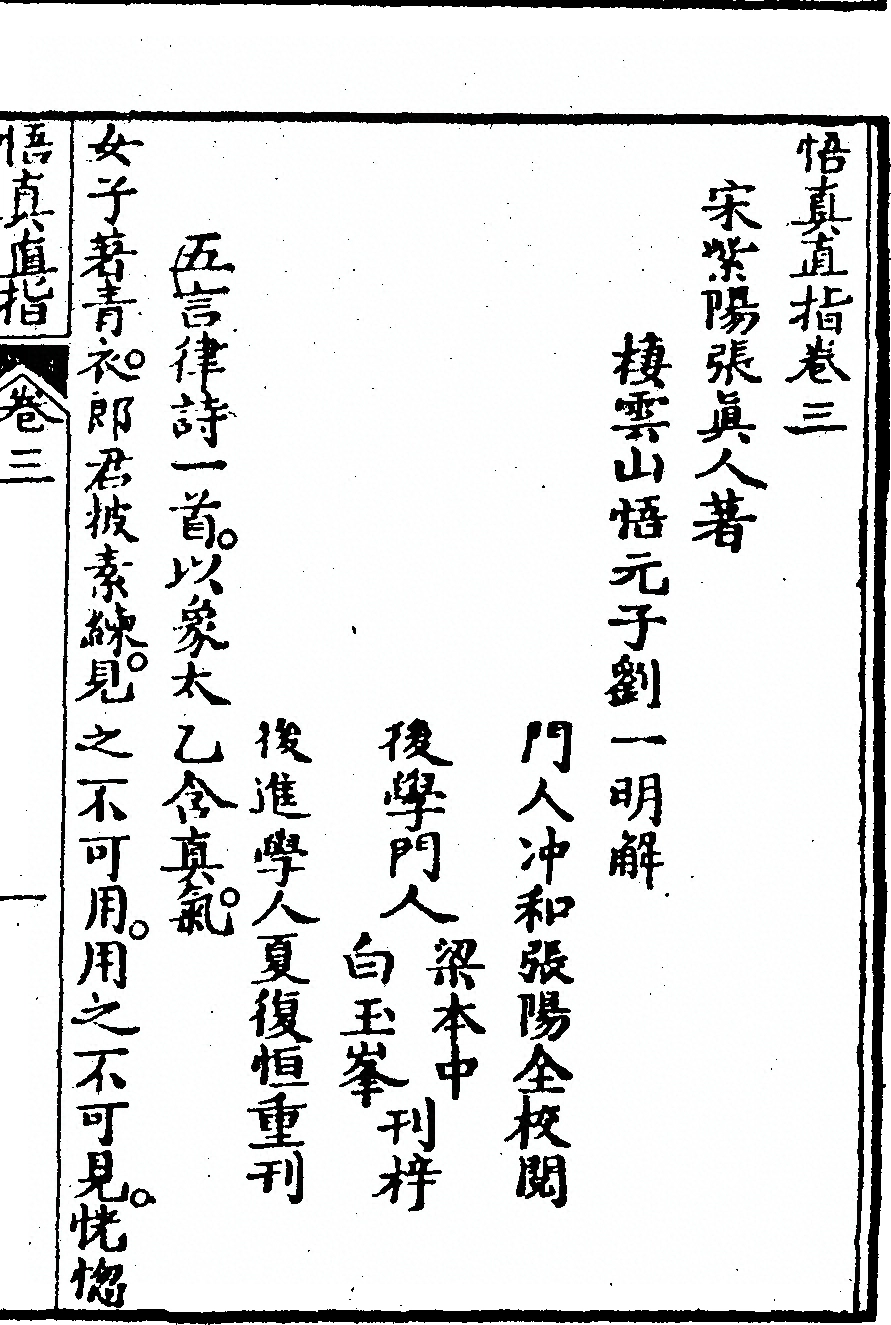 悟真直指卷三
宋紫陽張眞人著
棲雲山悟元子劉一明解
門人冲和張陽全校閱
後學門人梁本中白玉峯刊梓
後進學人夏復恒重刊
五言律詩一首。以象太乙含真氣。
女子著青衣。郎君披素練。見之不可用。用之不可見。恍惚
悟真直指 卷三 一